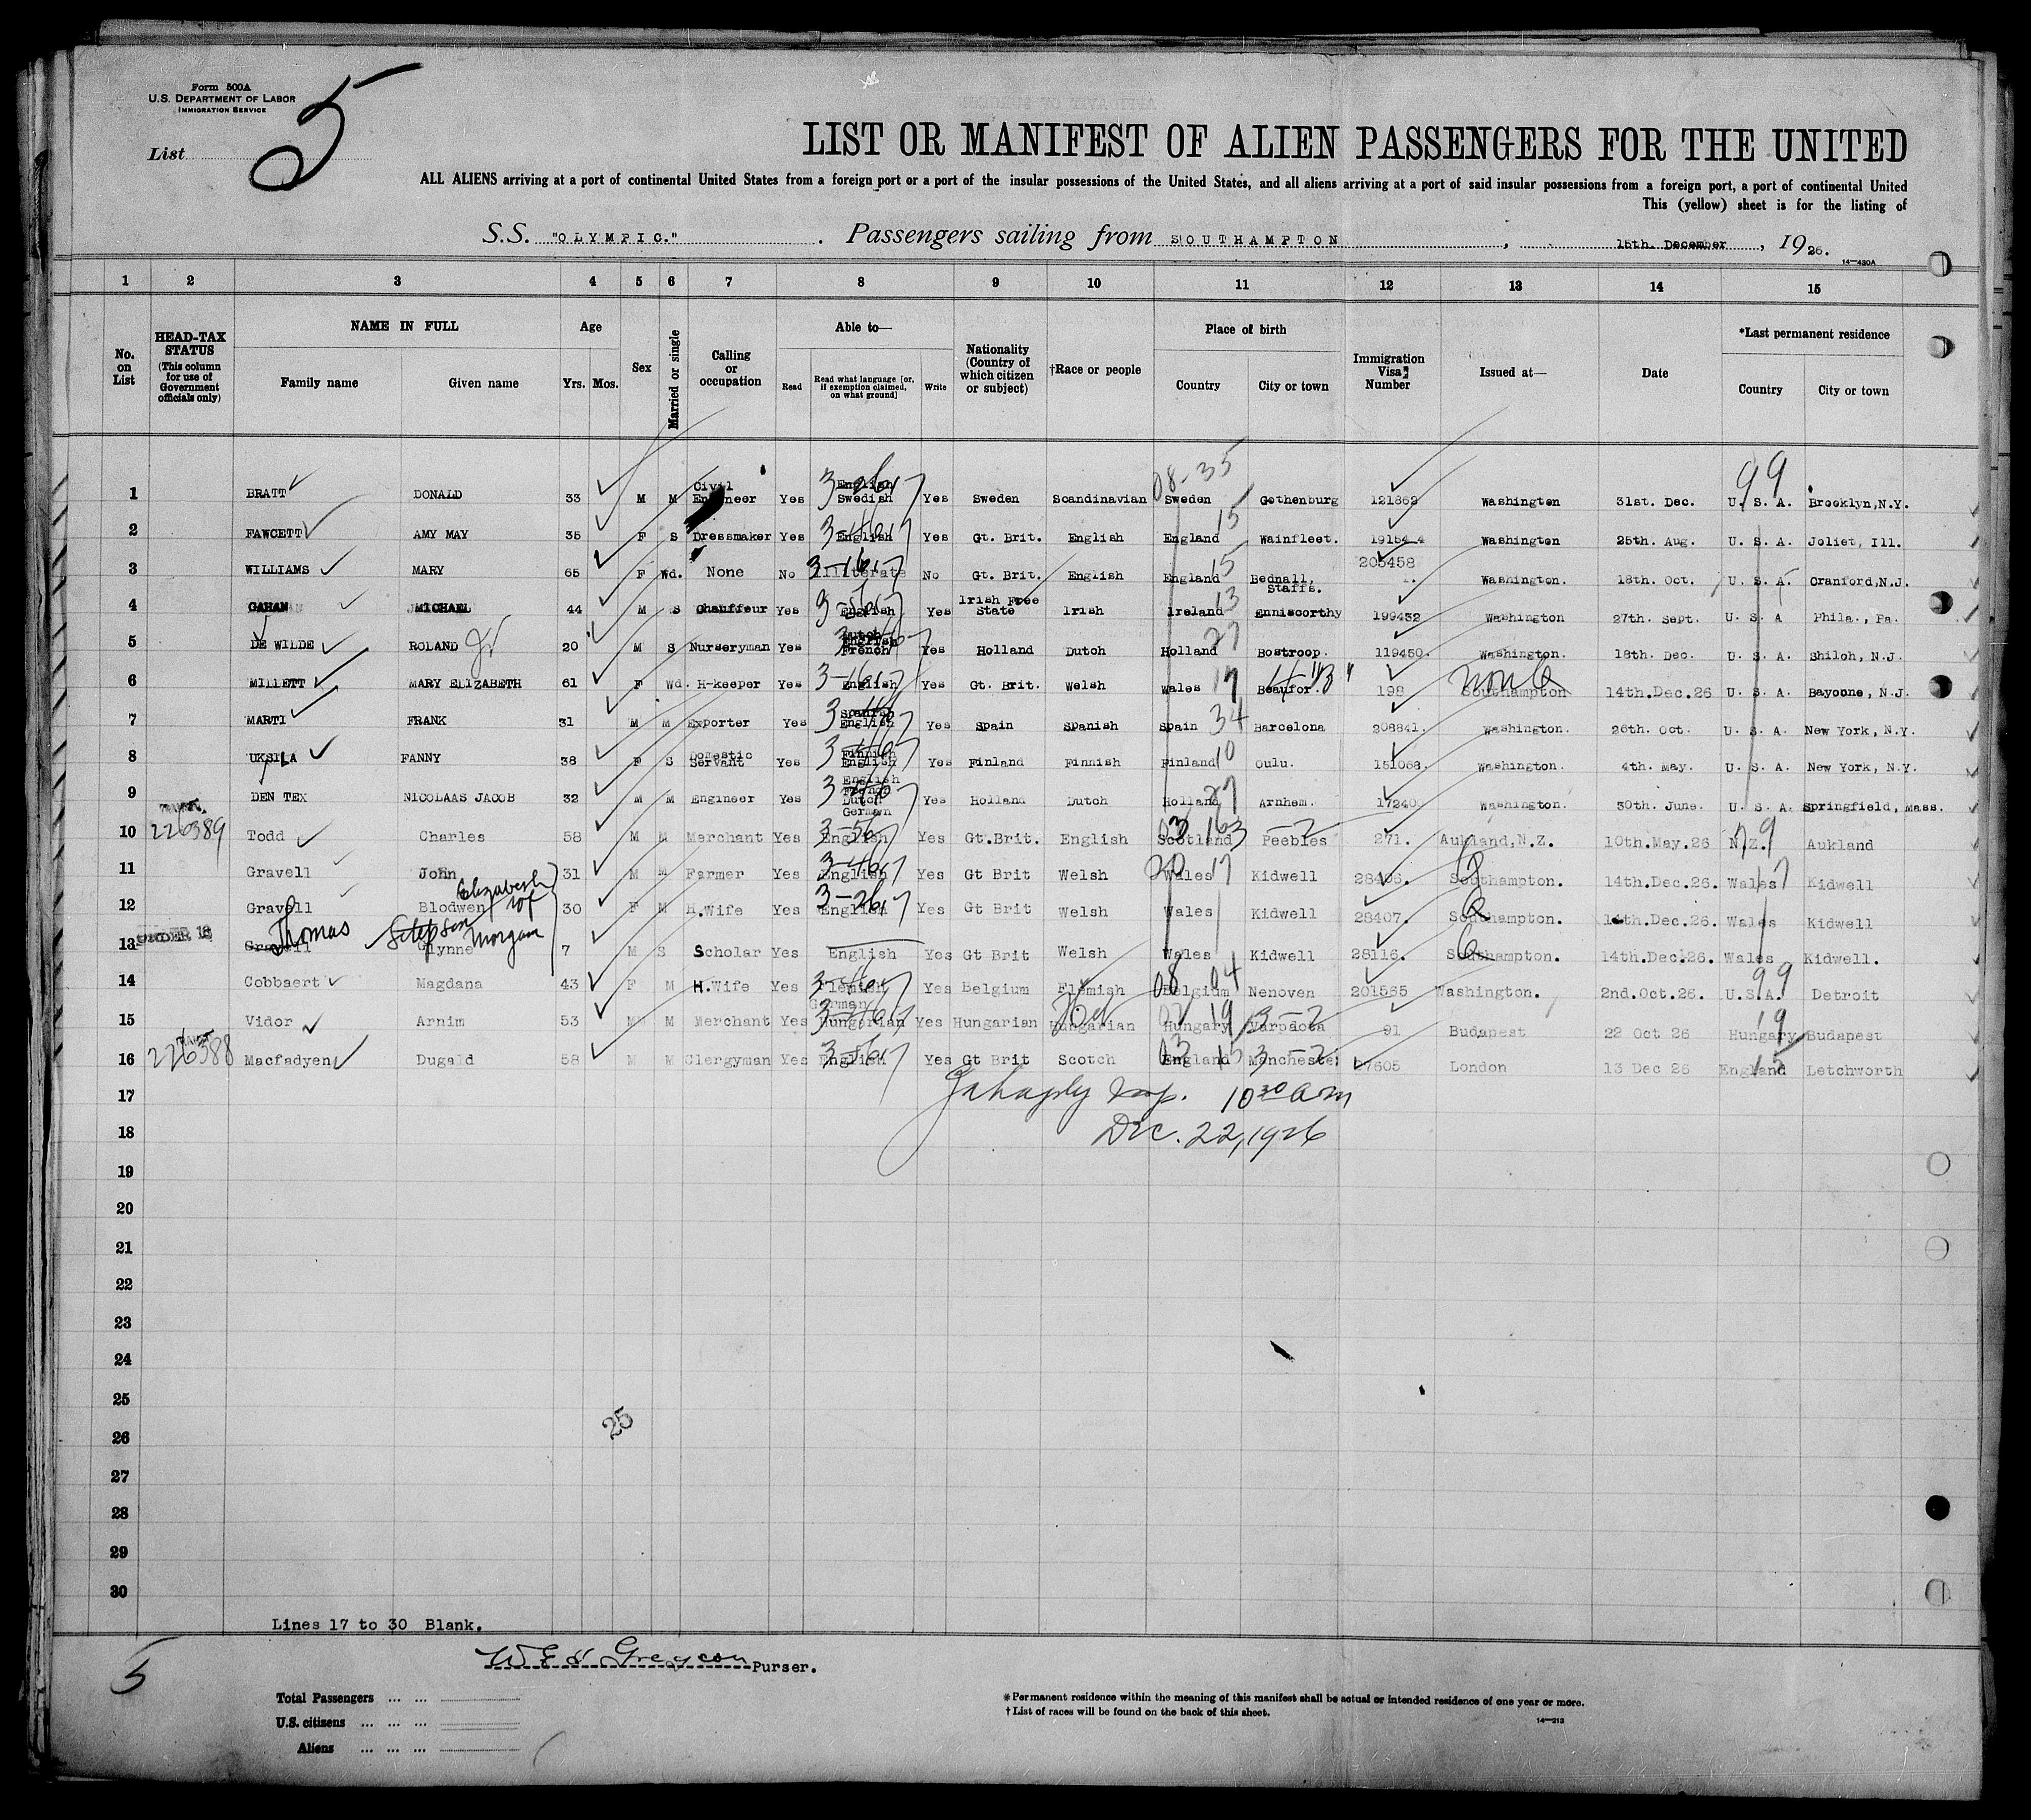 Form 500A
U.S. DEPARTMENT OF LABOR
IMMIGRATION SERVICE
List 5
LIST OR MANIFEST OF ALIEN PASSENGERS FOR THE UNITED
ALL ALIENS arriving at a port of continental United States from a foreign port or a port of the insular possessions of the United States, and all aliens arriving at a port of said insular possessions from a foreign port, a port of continental United
This (yellow) sheet is for the listing of
S.S. "OLYMPIC." Passengers sailing from SOUTHAMPTON, 15th. December, 1926.
14—430A
1 2 3 4 5 6 7 8 9 10 11 12 13 14 15
No. on List
HEAD-TAX STATUS (This column for use of Government officials only)
NAME IN FULL
Family name Given name
Age
Yrs. Mos.
Sex
Married or single
Calling or occupation
Able to—
Read
Read what language [or, if exemption claimed, on what ground]
Write
Nationality (Country of which citizen or subject)
†Race or people
Place of birth
Country City or town
Immigration Visa Number
Issued at—
Date
*Last permanent residence
Country City or town
1 BRATT DONALD 33 M M Civil Engineer Yes English Swedish Yes Sweden Scandinavian Sweden Gothenburg 121862 Washington 31st. Dec. U. S. A. Brooklyn,N.Y.
08-35 99
2 FAWCETT AMY MAY 35 F S Dressmaker Yes English Yes Gt. Brit. English England 15 Wainfleet. Washington 25th. Aug. U. S. A. Joliet, Ill.
3 WILLIAMS MARY 65 F Wd. None No Illiterate No Gt. Brit. English England 15 Bednall, Staffs. 205458 Washington. 18th. Oct. U. S. A. Cranford,N.J.
4 GAHAN MICHAEL 44 M S Chauffeur Yes English Yes Irish Free State Irish Ireland 13 Enniscorthy 199432 Washington 27th. Sept. U. S. A Phila., Pa.
5 DE WILDE ROLAND Jr 20 M S Nurseryman Yes Dutch English French Yes Holland Dutch Holland 27 Bostroop. 119450. Washington. 18th. Dec. U. S. A. Shiloh, N.J.
6 MILLETT MARY ELIZABETH 61 F Wd. H-keeper Yes English Yes Gt. Brit. Welsh Wales 17 Beaufor. 198 Southampton 14th.Dec.26 U. S. A. Bayonne, N.J.
7 MARTI FRANK 31 M M Exporter Yes Spanish English Yes Spain Spanish Spain 34 Barcelona 208841. Washington. 26th. Oct. U. S. A. New York, N.Y.
8 UKSILA FANNY 38 F S Domestic Servant Yes Finnish English Yes Finland Finnish Finland 10 Oulu. 151068. Washington. 4th. May. U. S. A. New York, N.Y.
9 DEN TEX NICOLAAS JACOB 32 M M Engineer Yes English French Dutch German Yes Holland Dutch Holland 27 Arnhem. 17240 Washington. 30th. June. U. S. A. Springfield, Mass.
10 226389 Todd Charles 58 M M Merchant Yes English Yes Gt.Brit. English Scotland Peebles 271. Aukland,N.Z. 10th.May.26 N.Z. Aukland
11 Gravell John 31 M M Farmer Yes English Yes Gt Brit Welsh Wales 17 Kidwell 28406. Southampton. 14th.Dec.26. Wales Kidwell
12 Gravell Blodwen Elizabeth wf 30 F M H.Wife Yes English Yes Gt Brit Welsh Wales Kidwell 28407. Southampton. 14th.Dec.26. Wales Kidwell
13 UNDER 16 Gravell Thomas Stepson Glynne Morgan 7 M S Scholar Yes English Yes Gt Brit Welsh Wales Kidwell 28116. Southampton. 14th.Dec.26. Wales Kidwell.
14 Cobbaert Magdana 43 F M H.Wife Yes Flemish Yes Belgium Flemish Belgium 08 04 Nenoven 201565 Washington. 2nd.Oct.26. U.S.A. 99 Detroit
15 Vidor Arnim 53 M M Merchant Yes German Hungarian Yes Hungarian Hungarian Hungary 19 Varpaota 91 Budapest 22 Oct 26 Hungary 19 Budapest
16 226388 Macfadyen Dugald 58 M M Clergyman Yes English Yes Gt Brit Scotch England 03 15 3-2 Manchester 27605 London 13 Dec 26 England 15 Letchworth
17 10 30 am
18 Dec. 22, 1926
19
20
21
22
23
24
25
25
26
27
28
29
30
Lines 17 to 30 Blank.
5
Purser.
Total Passengers ... ...
U.S. citizens ... ... ...
Aliens ... ... ...
* Permanent residence within the meaning of this manifest shall be actual or intended residence of one year or more.
† List of races will be found on the back of this sheet.
14—213